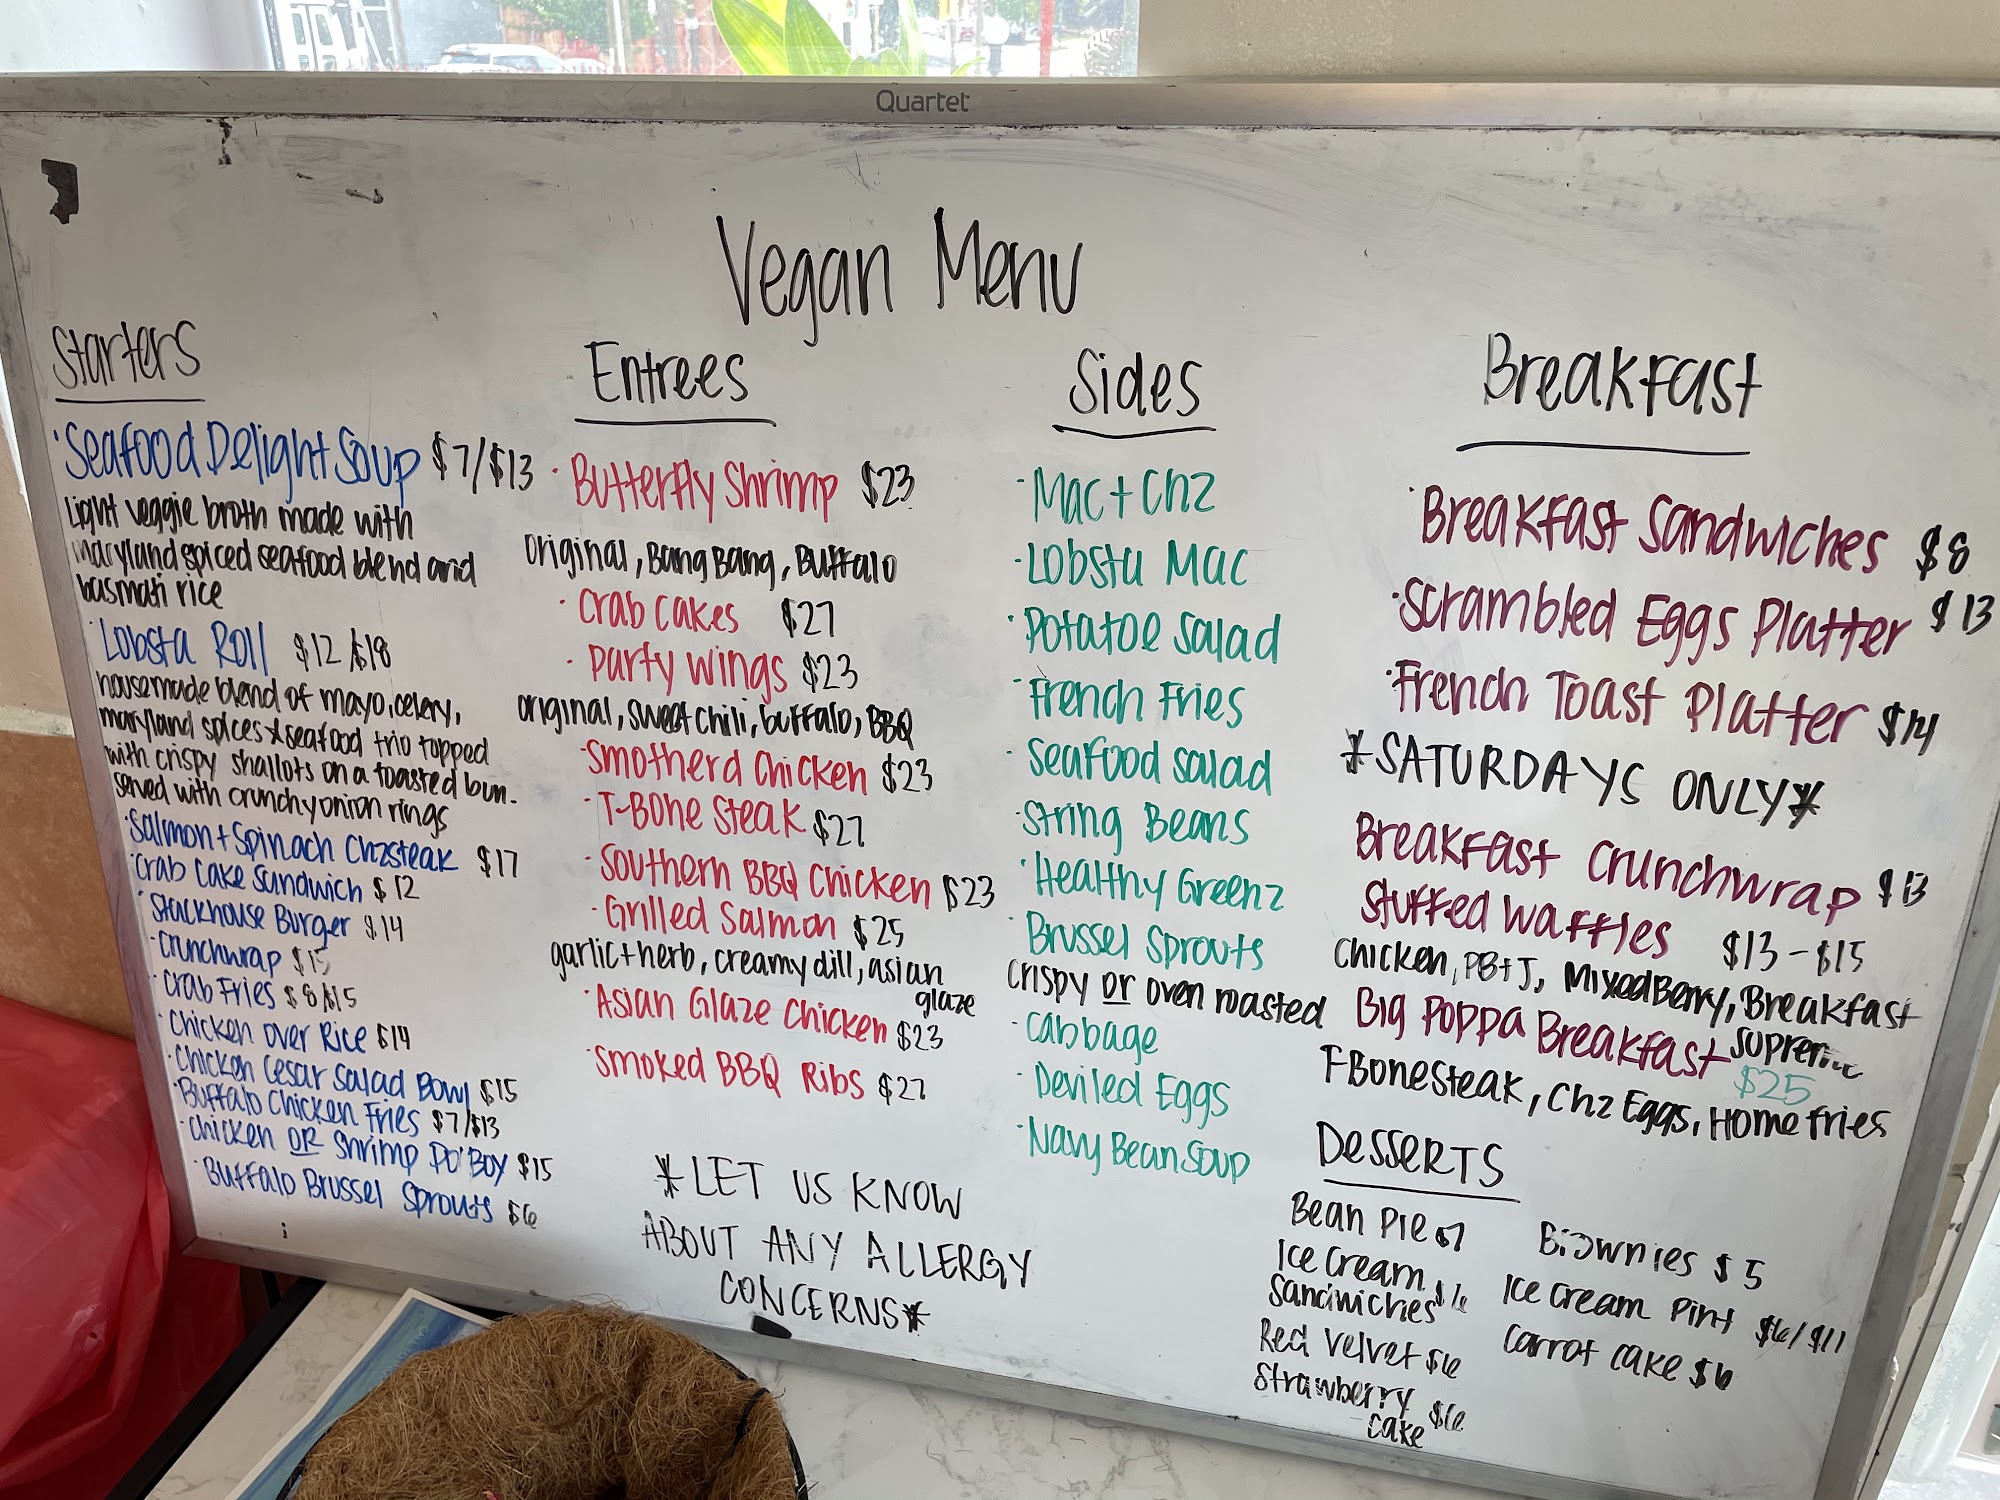 Quartet
Vegan Menu
Starters
·Seafood Delight Soup $7/$13
Light veggie broth made with
maryland spiced seafood blend and
basmati rice
·Lobsta Roll $12/$18
housemade blend of mayo, celery,
maryland spices & seafood trio topped
with crispy shallots on a toasted bun.
served with crunchy onion rings
·Salmon + Spinach Chzsteak $17
·Crab Cake Sandwich $12
·Stackhouse Burger $14
·Crunchwrap $15
·Crab Fries $8/$15
·Chicken over Rice $14
·Chicken Cesar Salad Bowl $15
·Buffalo Chicken Fries $7/$13
·Chicken OR Shrimp Po'Boy $15
·Buffalo Brussel Sprouts $6
Entrees
·Butterfly Shrimp $23
Original, Bang Bang, Buffalo
·Crab Cakes $27
·Party Wings $23
original, sweet chili, buffalo, BBQ
·Smotherd Chicken $23
·T-Bone Steak $27
·Southern BBQ Chicken $23
·Grilled Salmon $25
garlic + herb, creamy dill, asian
glaze
·Asian Glaze Chicken $23
·Smoked BBQ Ribs $27
*LET US KNOW
ABOUT ANY ALLERGY
CONCERNS*
Sides
·Mac + Chz
·Lobsta Mac
·Potatoe Salad
·French Fries
·Seafood Salad
·String Beans
·Healthy Greenz
·Brussel Sprouts
Crispy or oven roasted
·Cabbage
·Deviled Eggs
·Navy Bean Soup
Breakfast
·Breakfast Sandwiches $8
·Scrambled Eggs Platter $13
·French Toast Platter $14
*SATURDAYS ONLY*
Breakfast Crunchwrap $13
Stuffed Waffles $13-$15
Chicken, PB+J, Mixed Berry, Breakfast
Supreme
Big Poppa Breakfast $25
T-Bone steak, Chz Eggs, Home fries
Desserts
Bean Pie $7
Ice Cream
Sandwiches $6
Red Velvet $6
Strawberry
Cake $6
Brownies $5
Ice Cream Pint $6/$11
Carrot Cake $6